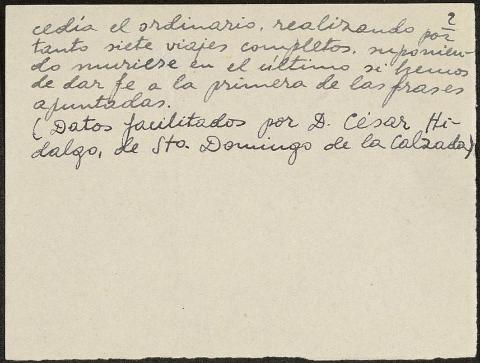 2
cedía el ordinario, realizando por
tanto siete viajes completos, suponien-
do muriese en el último si hemos
de dar fe a la primera de las frases
apuntadas.
(Datos facilitados por D. César Hi-
dalgo, de Sto. Domingo de la Calzada)